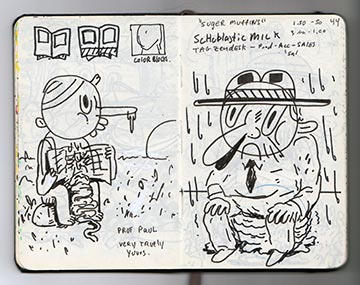 COLOR BLOCK.
PROF PAUL
VERY TRUELY
YOURS.
"SUGER MUFFINS"
1.50 -50 44
ScHoblastic MICK
TAG ZENDESK - Prod - Acc - SALES